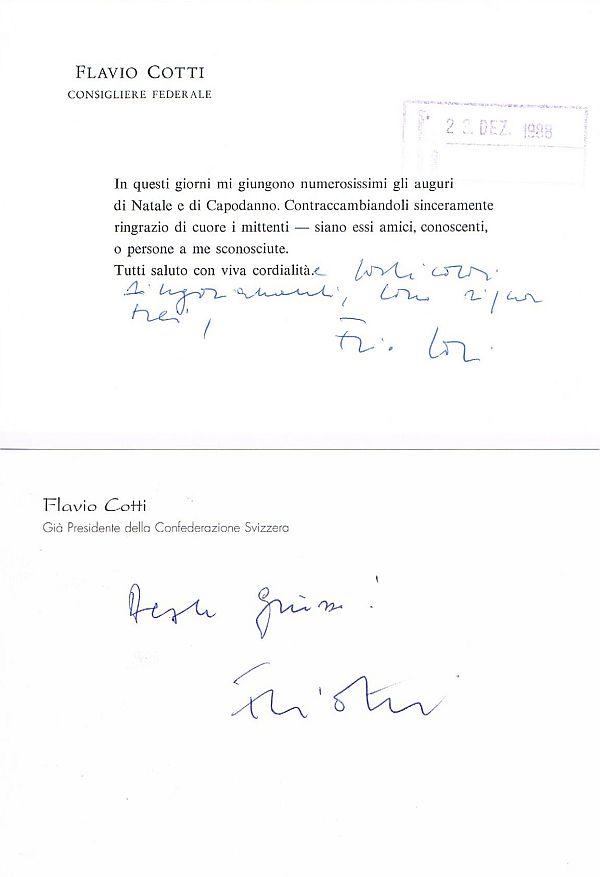 FLAVIO COTTI
CONSIGLIERE FEDERALE
23. DEZ. 1988
In questi giorni mi giungono numerosissimi gli auguri
di Natale e di Capodanno. Contraccambiandoli sinceramente
ringrazio di cuore i mittenti — siano essi amici, conoscenti,
o persone a me sconosciute.
Tutti saluto con viva cordialità. e
Flavio Cotti
Già Presidente della Confederazione Svizzera
Beste Grüsse!